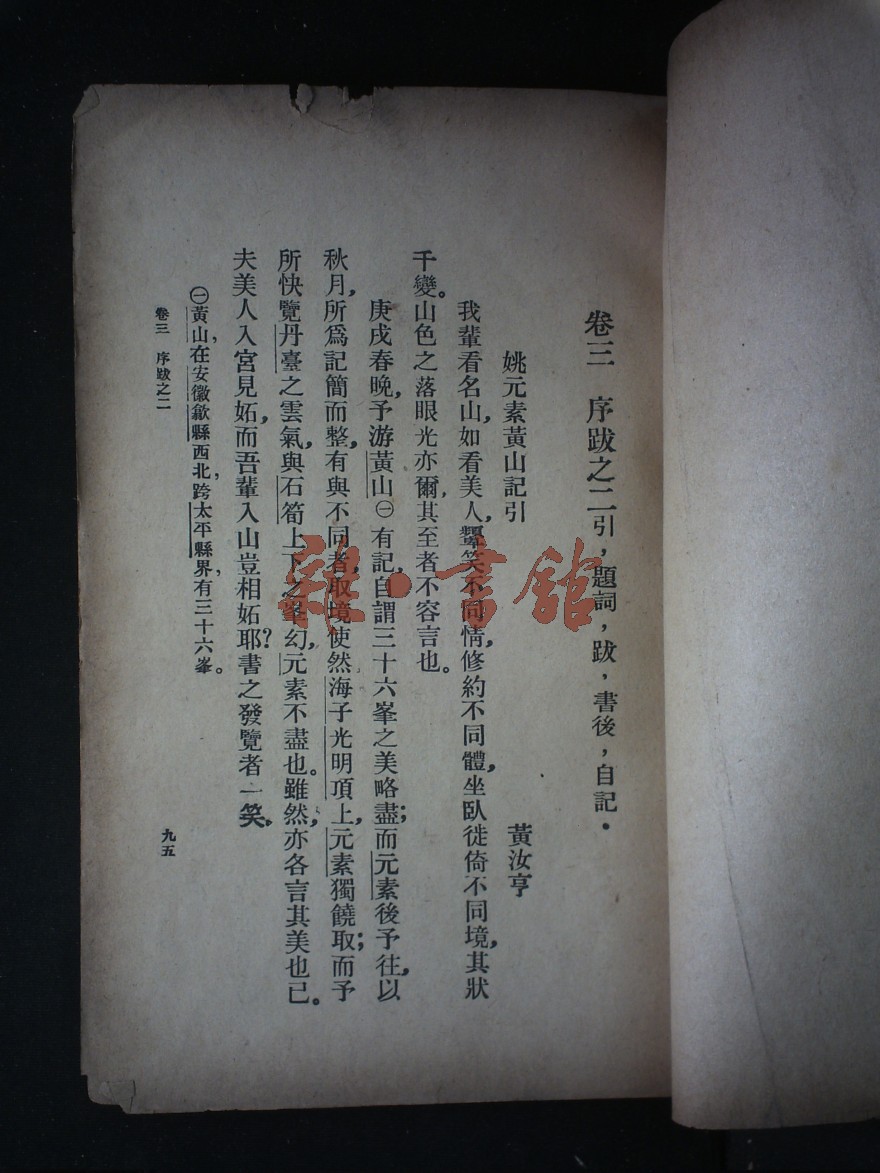 卷三　序跋之二引，題詞，跋，書後，自記．
姚元素黃山記引　黃汝亨
我輩看名山，如看美人，顰笑不同情，修約不同體，坐臥徙倚不同境，其狀
千變。山色之落眼光亦爾，其至者不容言也。
庚戌春晚，予游黃山㊀有記，自謂三十六峯之美略盡；而元素後予往，以
秋月，所爲記簡而整，有與不同者，取境使然海子光明項上，元素獨饒取；而予
所快覽丹臺之雲氣，與石筍上下之峯幻，元素不盡也。雖然，亦各言其美也已。
夫美人入宮見妬，而吾輩入山豈相妬耶？書之發覽者一笑。
㊀黃山，在安徽歙縣西北，跨太平縣界，有三十六峯。
卷三　序跋之二
九五
雜·書館